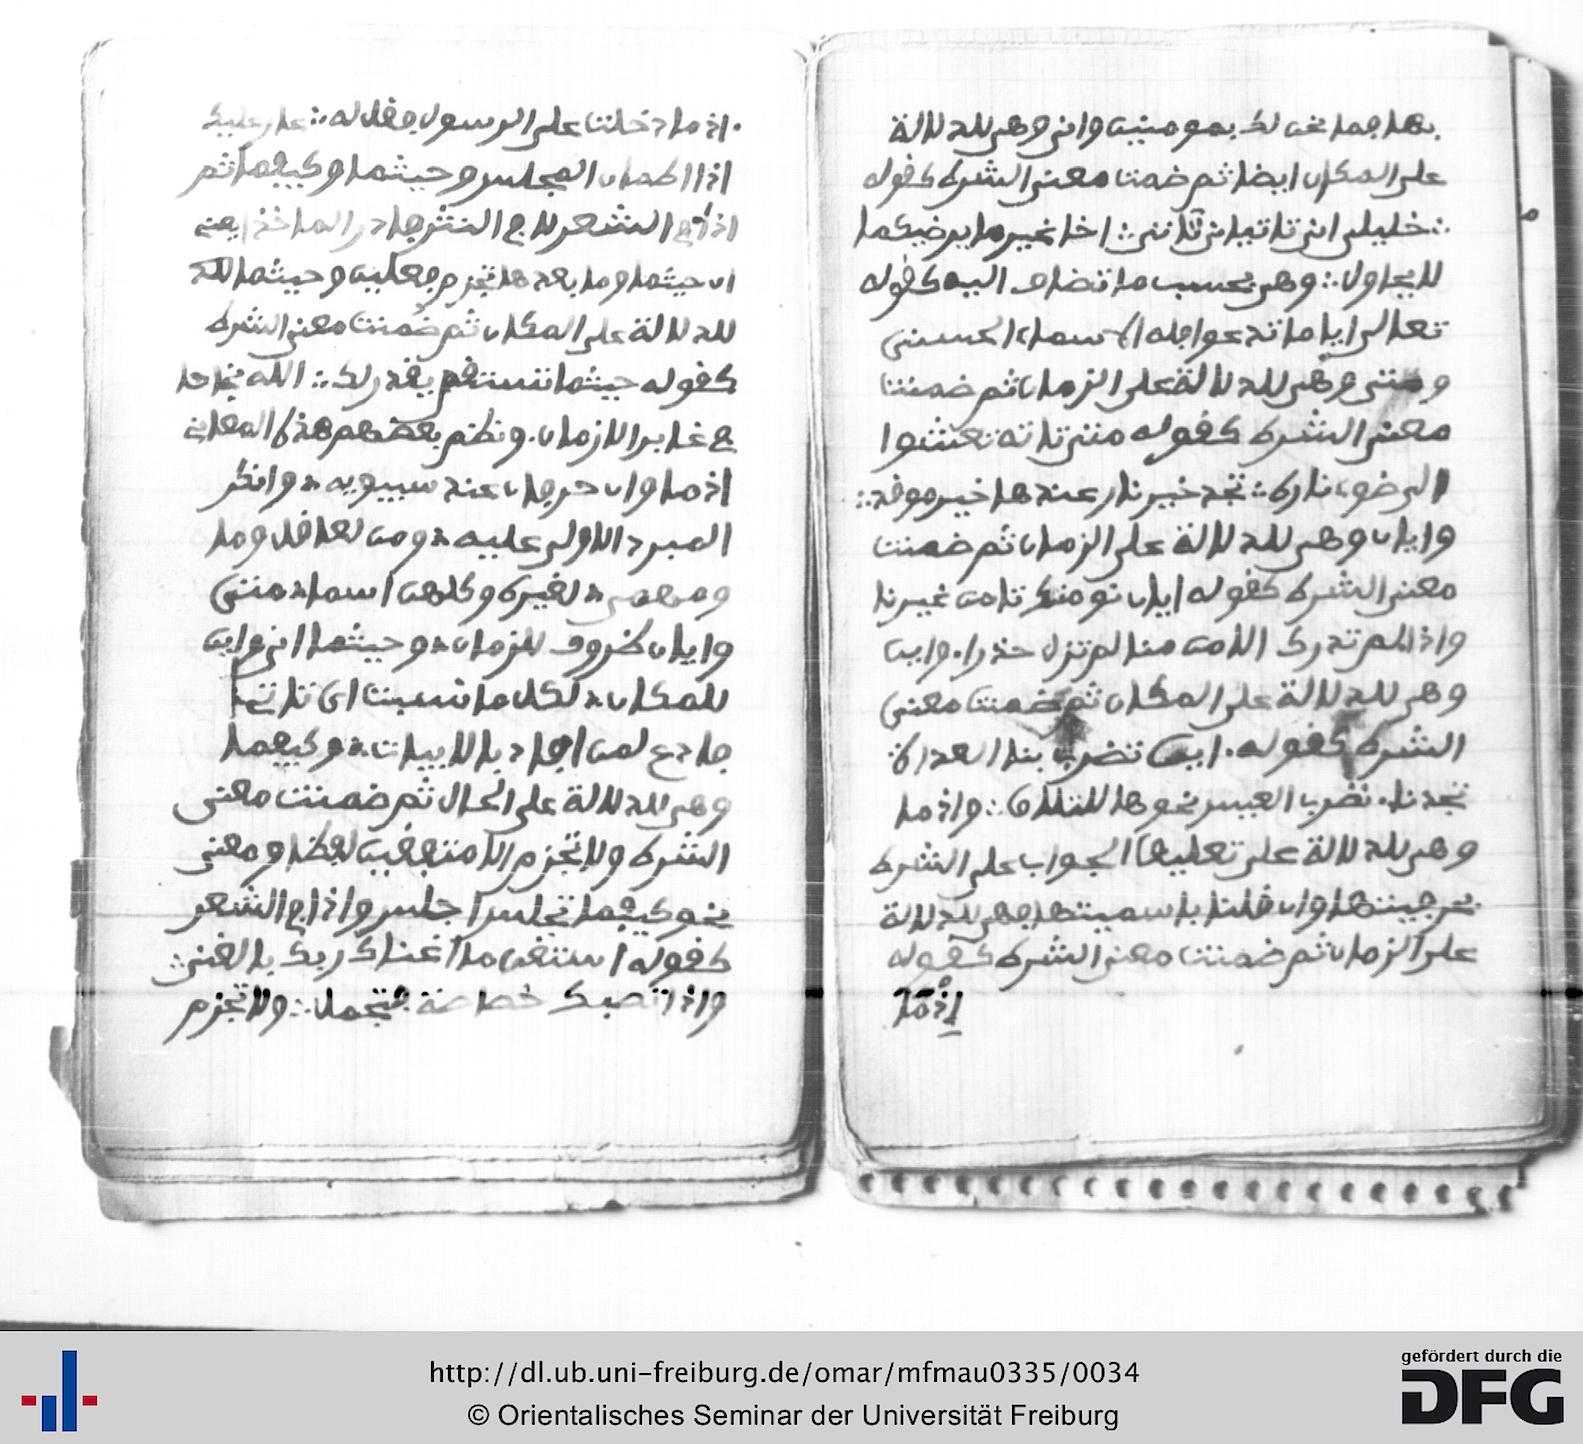 بها فما نحن لك بمومنين وانى وهى للدلالة
على المكان ايضا ثم ضمنت معنى الشرط كقوله
خليلى انى تاتيانى تاتيا اخا غير ما يرضيكما
لا يحاول وهى بحسب ما تضاف اليه كقوله
تعالى ايا ما تدعوا فله الاسماء الحسنى
ومتى وهى للدلالة على الزمان ثم ضمنت
معنى الشرط كقوله متى تاته تعشوا
الى ضوء ناره تجد خير نار عندها خير موقد
وايان وهى للدلالة على الزمان ثم ضمنت
معنى الشرط كقوله ايان نومنك تامن غيرنا
واذا لم تدرك الامن منا لم تزل حذرا واين
وهى للدلالة على المكان ثم ضمنت معنى
الشرط كقوله اين تضرب بنا العداة
تجدنا نضرب العيس نحوها للتلاق واذ ما
وهى للدلالة على تعليق الجواب على الشرط
بحرفيتها وان قلنا باسميتها فهى للدلالة
على الزمان ثم ضمنت معنى الشرط كقوله
إذ ما
اذ ما دخلت على الرسول فقل له عليك
اذا اطمان المجلس وحيثما وكيفما ثم
اذا فى الشعر لا فى النثر فادر الماخذا يعنى
ان حيثما وما بعدها تجزم فعلين وحيثما
للدلالة على المكان ثم ضمنت معنى الشرط
كقوله حيثما تستقم يقدر لك الله نجاحا
فى غابر الازمان ونظم بعضهم هذه المعانى
اذ ما وان حرفان عند سيبويه وانكر
المبرد الاولى عليه ومن لعاقل وما
ومهمى لغيره وكلهن اسما متى
وايان ظروف للزمان وحيثما انى واين
للمكان لكل ما نسبت اى تاتى
فادع لمن افاد بالابيات وكيفما
وهى للدلالة على الحال ثم ضمنت معنى
الشرط ولا تجزم الا متفقين لفظا ومعنى
نحو كيفما تجلس اجلس واذا فى الشعر
كقوله استغن ما اغناك ربك بالغنى
واذا تصبك خصاصة فتجمل ولا تجزم
http://dl.ub.uni-freiburg.de/omar/mfmau0335/0034
© Orientalisches Seminar der Universität Freiburg
gefördert durch die
DFG